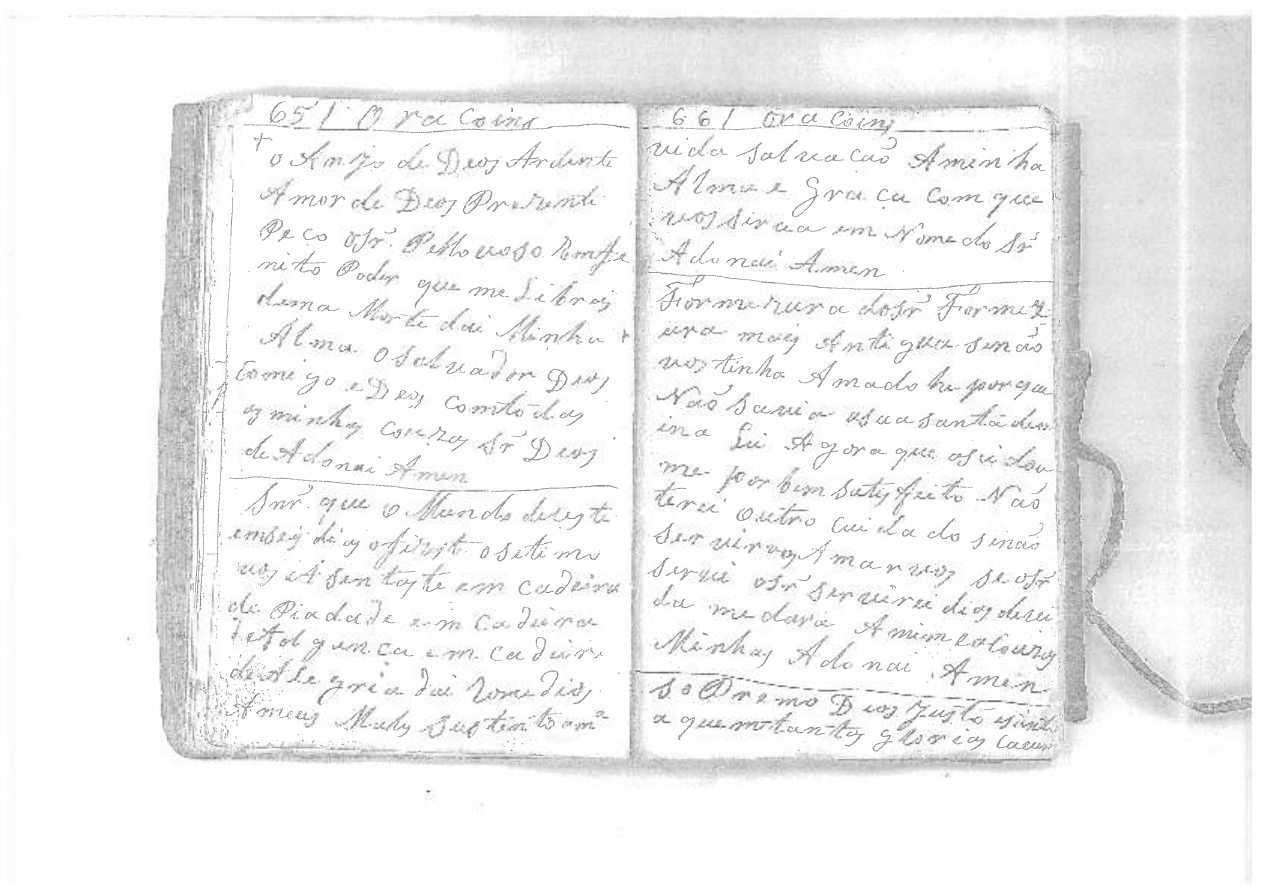 651 Oracoins
o Anjo de Deos Ardente
Amor de Deos Prezente
Peco osr. Pello voso Emfe
nito Poder que me Libreis
dema Morte dai Minha
Alma o salvador Deos
Comigo e Deos comtodas
as minhas couzas Sr Deos
de Adonai Amen
Snr. que o Mundo
emseis dias o setimo
vos Asentaste em cadeira
de Piadade em Cadeira
em Cadeira
de Alegria dai Remedios
Ameus Males sustento am
661 Oracoins
vida salvacaõ Aminha
Alma e Graça Com que
vos sirva em Nome do Sr
Adonai Amen
Formezura do Sr Formez
ura mais Antigua senaõ
vos tinha Amado he porque
Naõ savia asua santa deu
ina Lei Agora que asei dou
me por bem satisfeito Naõ
terei outro Cuidado senaõ
servirvos Amarvos se osr
servi osr servirei
da me dara Amim
Minhas Adonai Amen
Deos Justo
a quem tantas glorias